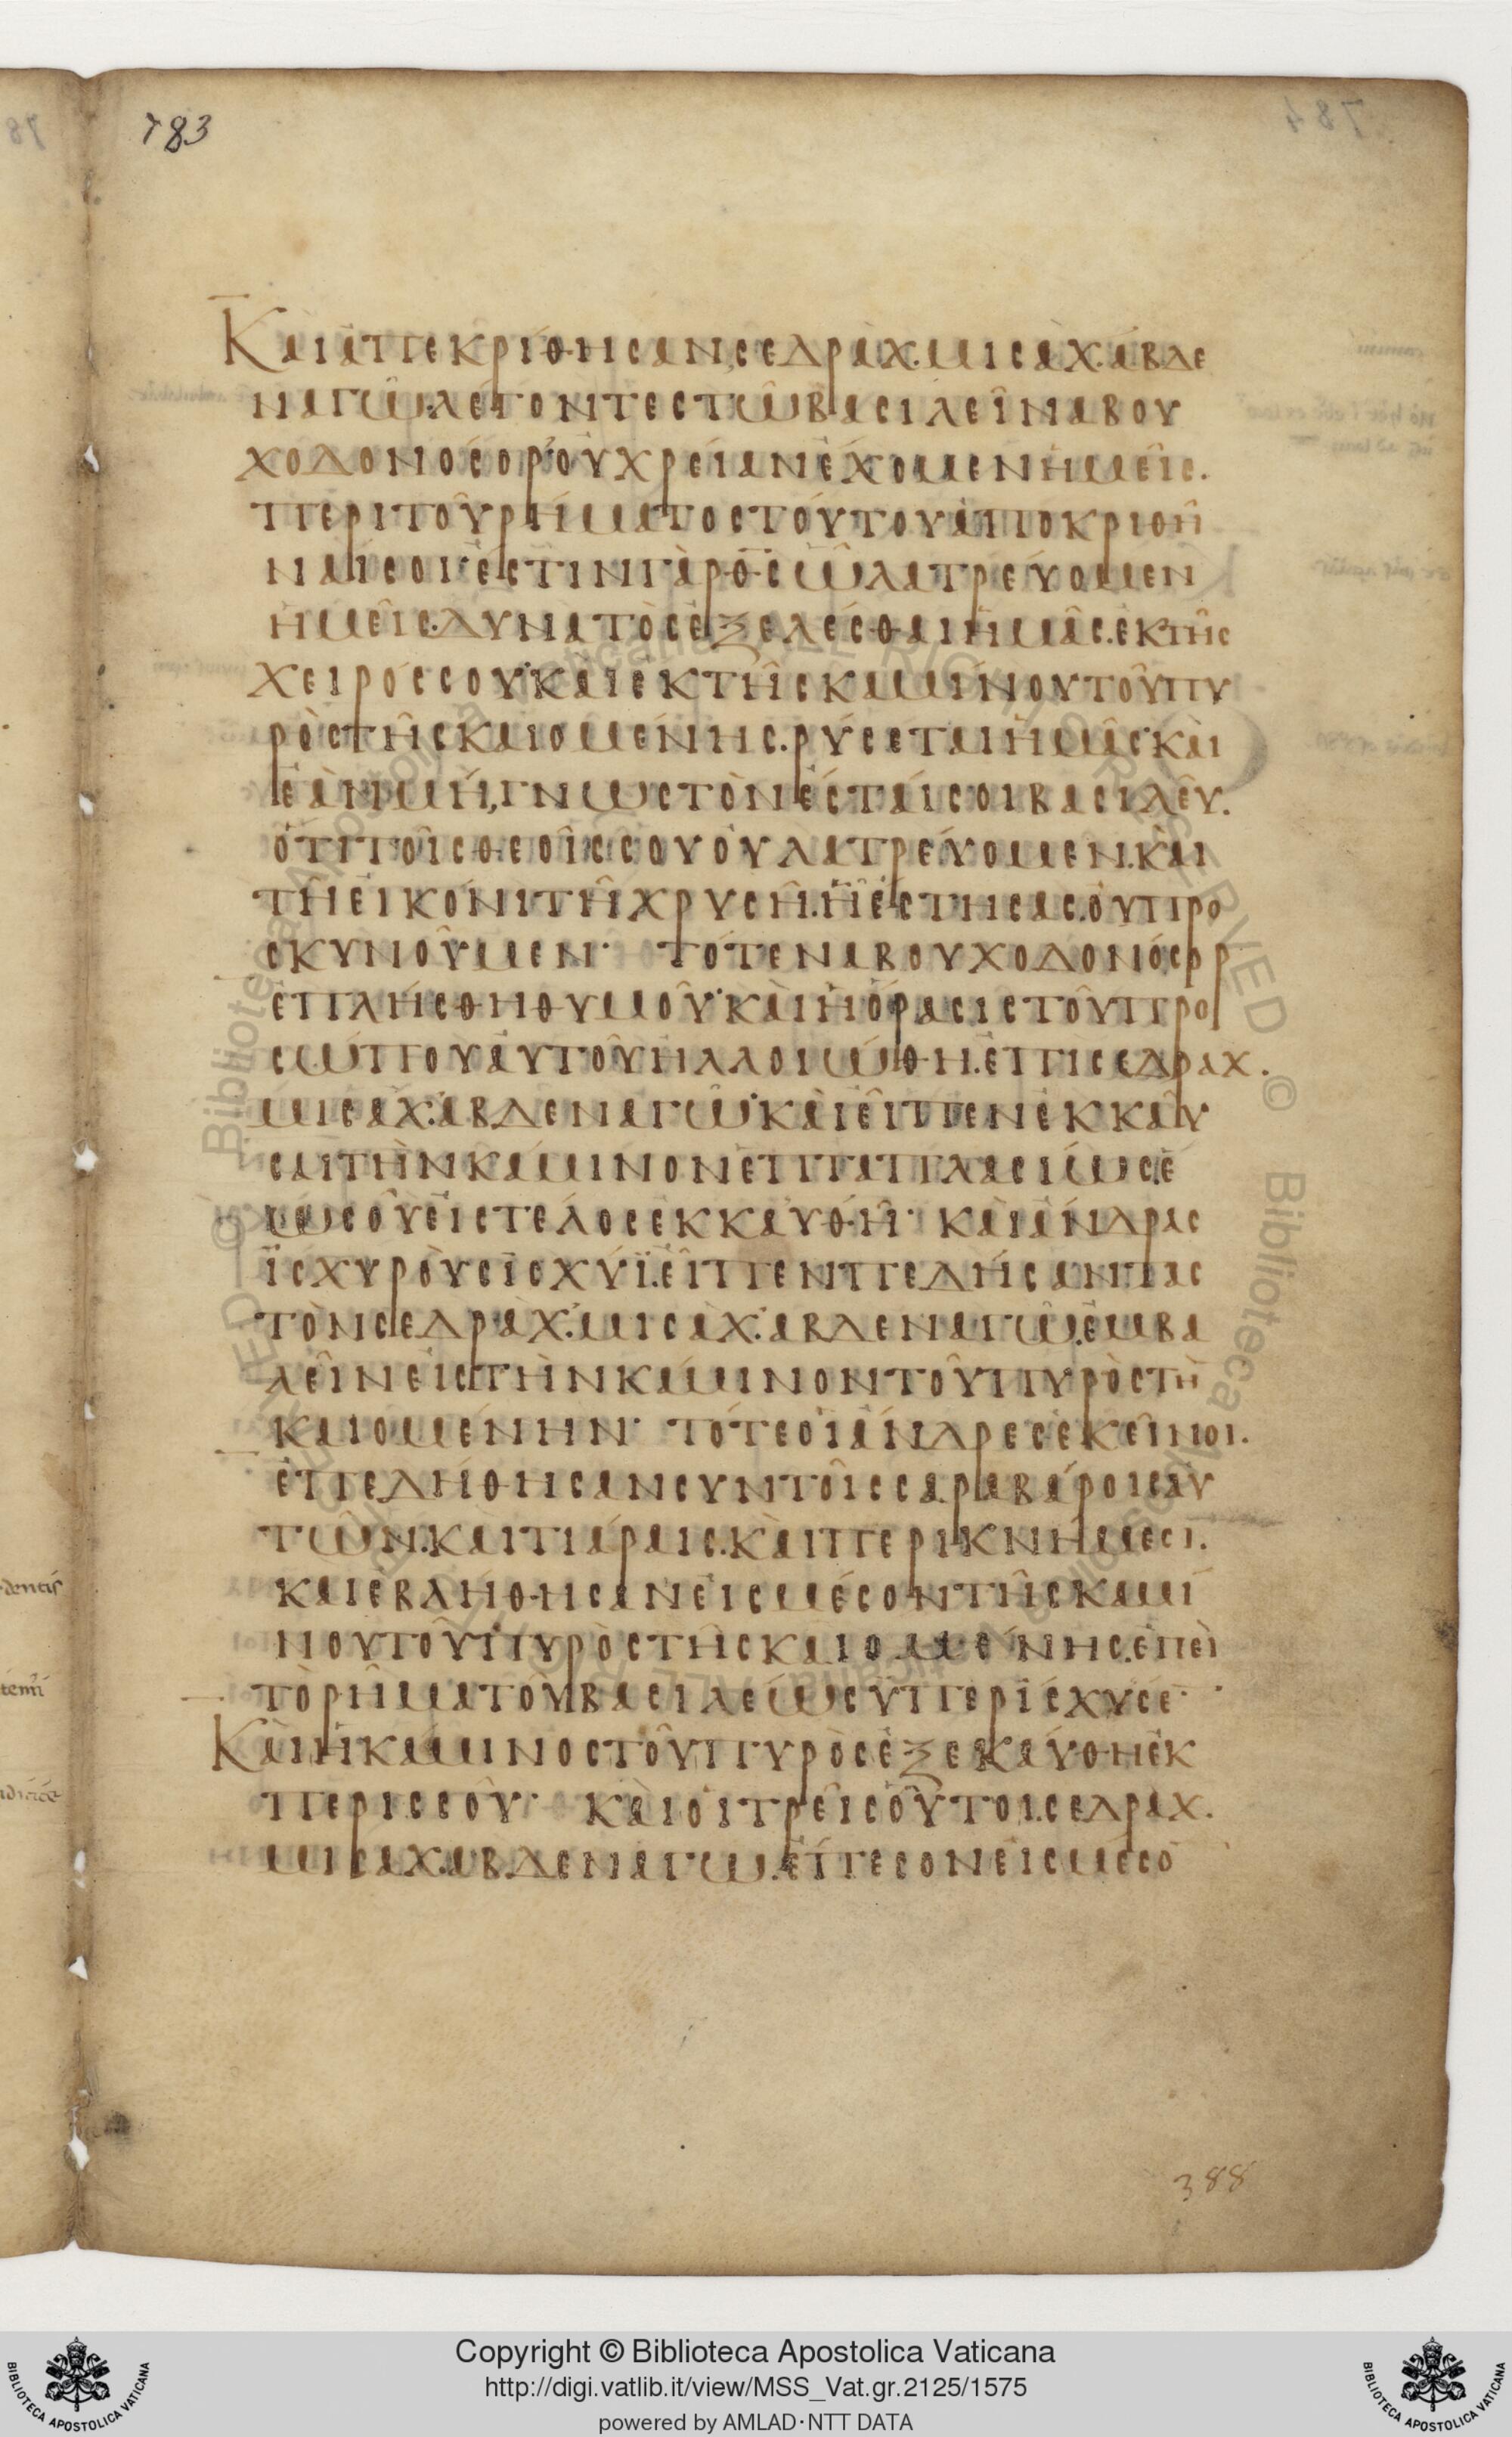 783
Κὰι ἀπεκρίθησαν, σεδρὰχ. μισὰχ. ἀβδε
ναγῶ. λέγοντες τῶ βασιλεῖ ναβου
χοδονόσορ· ὀυ χρείαν ἔχομεν ἡμεῖς.
περι τοῦ ῥήματος τόυτου ἀποκριθῆ
ναί σοι· ἔστιν γὰρ ὁ θς ὧ λατρέυομεν
ἡμεῖς. δυνατὸς ἐξελέσθαι ἡμᾶς. ἐκ τῆς
χειρός σου· καὶ ἐκ τῆς καμίνου τοῦ πυ
ρὸς τῆς καιομένης. ῥύσεται ἡμᾶς· κὰι
ἐὰν μή, γνωστὸν ἔσται σοι βασιλεῦ.
ὅτι τοῖς θεοῖς σου ὀυ λατρέυομεν. κὰι
τῆ ἐικόνι τῆ χρυσῆ. ἧ ἔστησας. ὀυ προ
σκυνοῦμεν· τότε ναβουχοδονόσορ
ἐπλήσθη θυμοῦ· κὰι ἡ ὅρασις τοῦ προ
σώπου ἀυτοῦ ἠλλοιώθη. ἐπι σεδραχ.
μισάχ. ἀβδεναγῶ· κὰι εἶπεν ἐκκαῦ
σαι τὴν κάμινον ἑπταπλασίως. ἕ
ως οὗ ἐις τέλος ἐκκαυθῆ· κὰι ἄνδρας
ἰσχυρὸυς ἰσχύϊ. εἶπεν πεδήσαντας
τὸν σεδρὰχ. μισὰχ. ἀβδεναγῶ. ἐμβα
λεῖν ἐις τὴν κάμινον τοῦ πυρὸς τὴ
καιομένην· τότε ὁι ἄνδρες ἐκεῖνοι.
ἐπεδήθησαν συν τοῖς σαραβάροις ἀυ
τῶν. καὶ τιάραις. κὰι περικνήμεσι.
και ἐβλήθησαν ἐις μέσον τῆς καμί
νου τοῦ πυρὸς τῆς καιομένης. ἐπεὶ
τὸ ῥῆμα τοῦ βασιλέως ὑπερίσχυσε·
Κὰι ἡ κάμινος τοῦ πυρὸς ἐξεκάυθη ἐκ
περισσοῦ· κὰι ὁι τρεῖς οὗτοι. σεδραχ.
μισαχ. αβδεναγω. ἔπεσον ἐις μέσο
388
Copyright © Biblioteca Apostolica Vaticana
http://digi.vatlib.it/view/MSS_Vat.gr.2125/1575
powered by AMLAD·NTT DATA
BIBLIOTECA APOSTOLICA VATICANA
BIBLIOTECA APOSTOLICA VATICANA